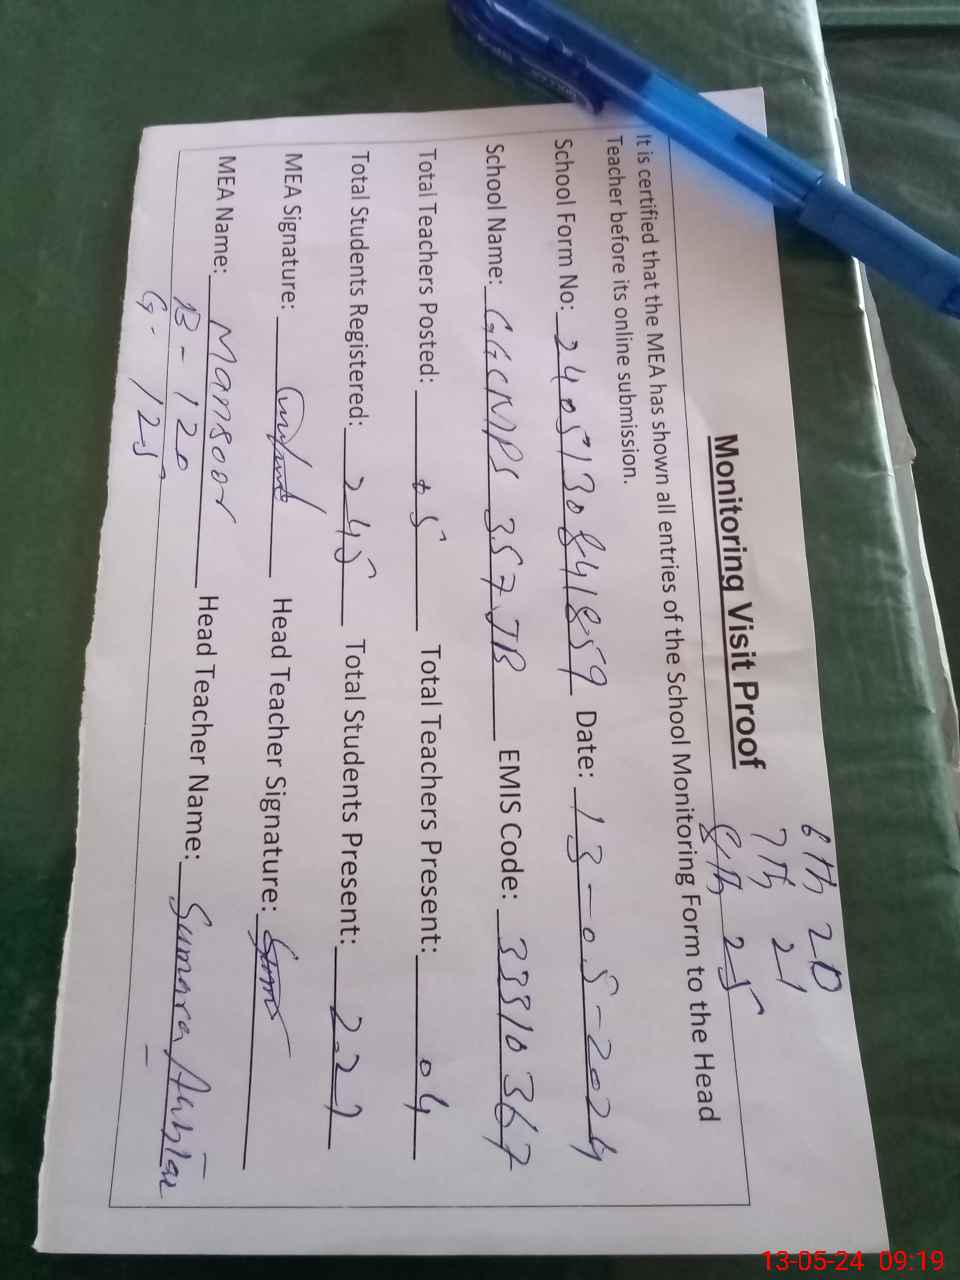 6th 20
7th 21
8th 25
Monitoring Visit Proof
It is certified that the MEA has shown all entries of the School Monitoring Form to the Head
Teacher before its online submission.
School Form No: 240513084 1859 Date: 13-05-2024
School Name: GGCMPS 357 JB EMIS Code: 33310367
Total Teachers Posted: 05 Total Teachers Present: 04
Total Students Registered: 245 Total Students Present: 221
MEA Signature: Head Teacher Signature:
MEA Name: Mansoor Head Teacher Name: Sumara
B-120
G-125
13-05-24 09:19